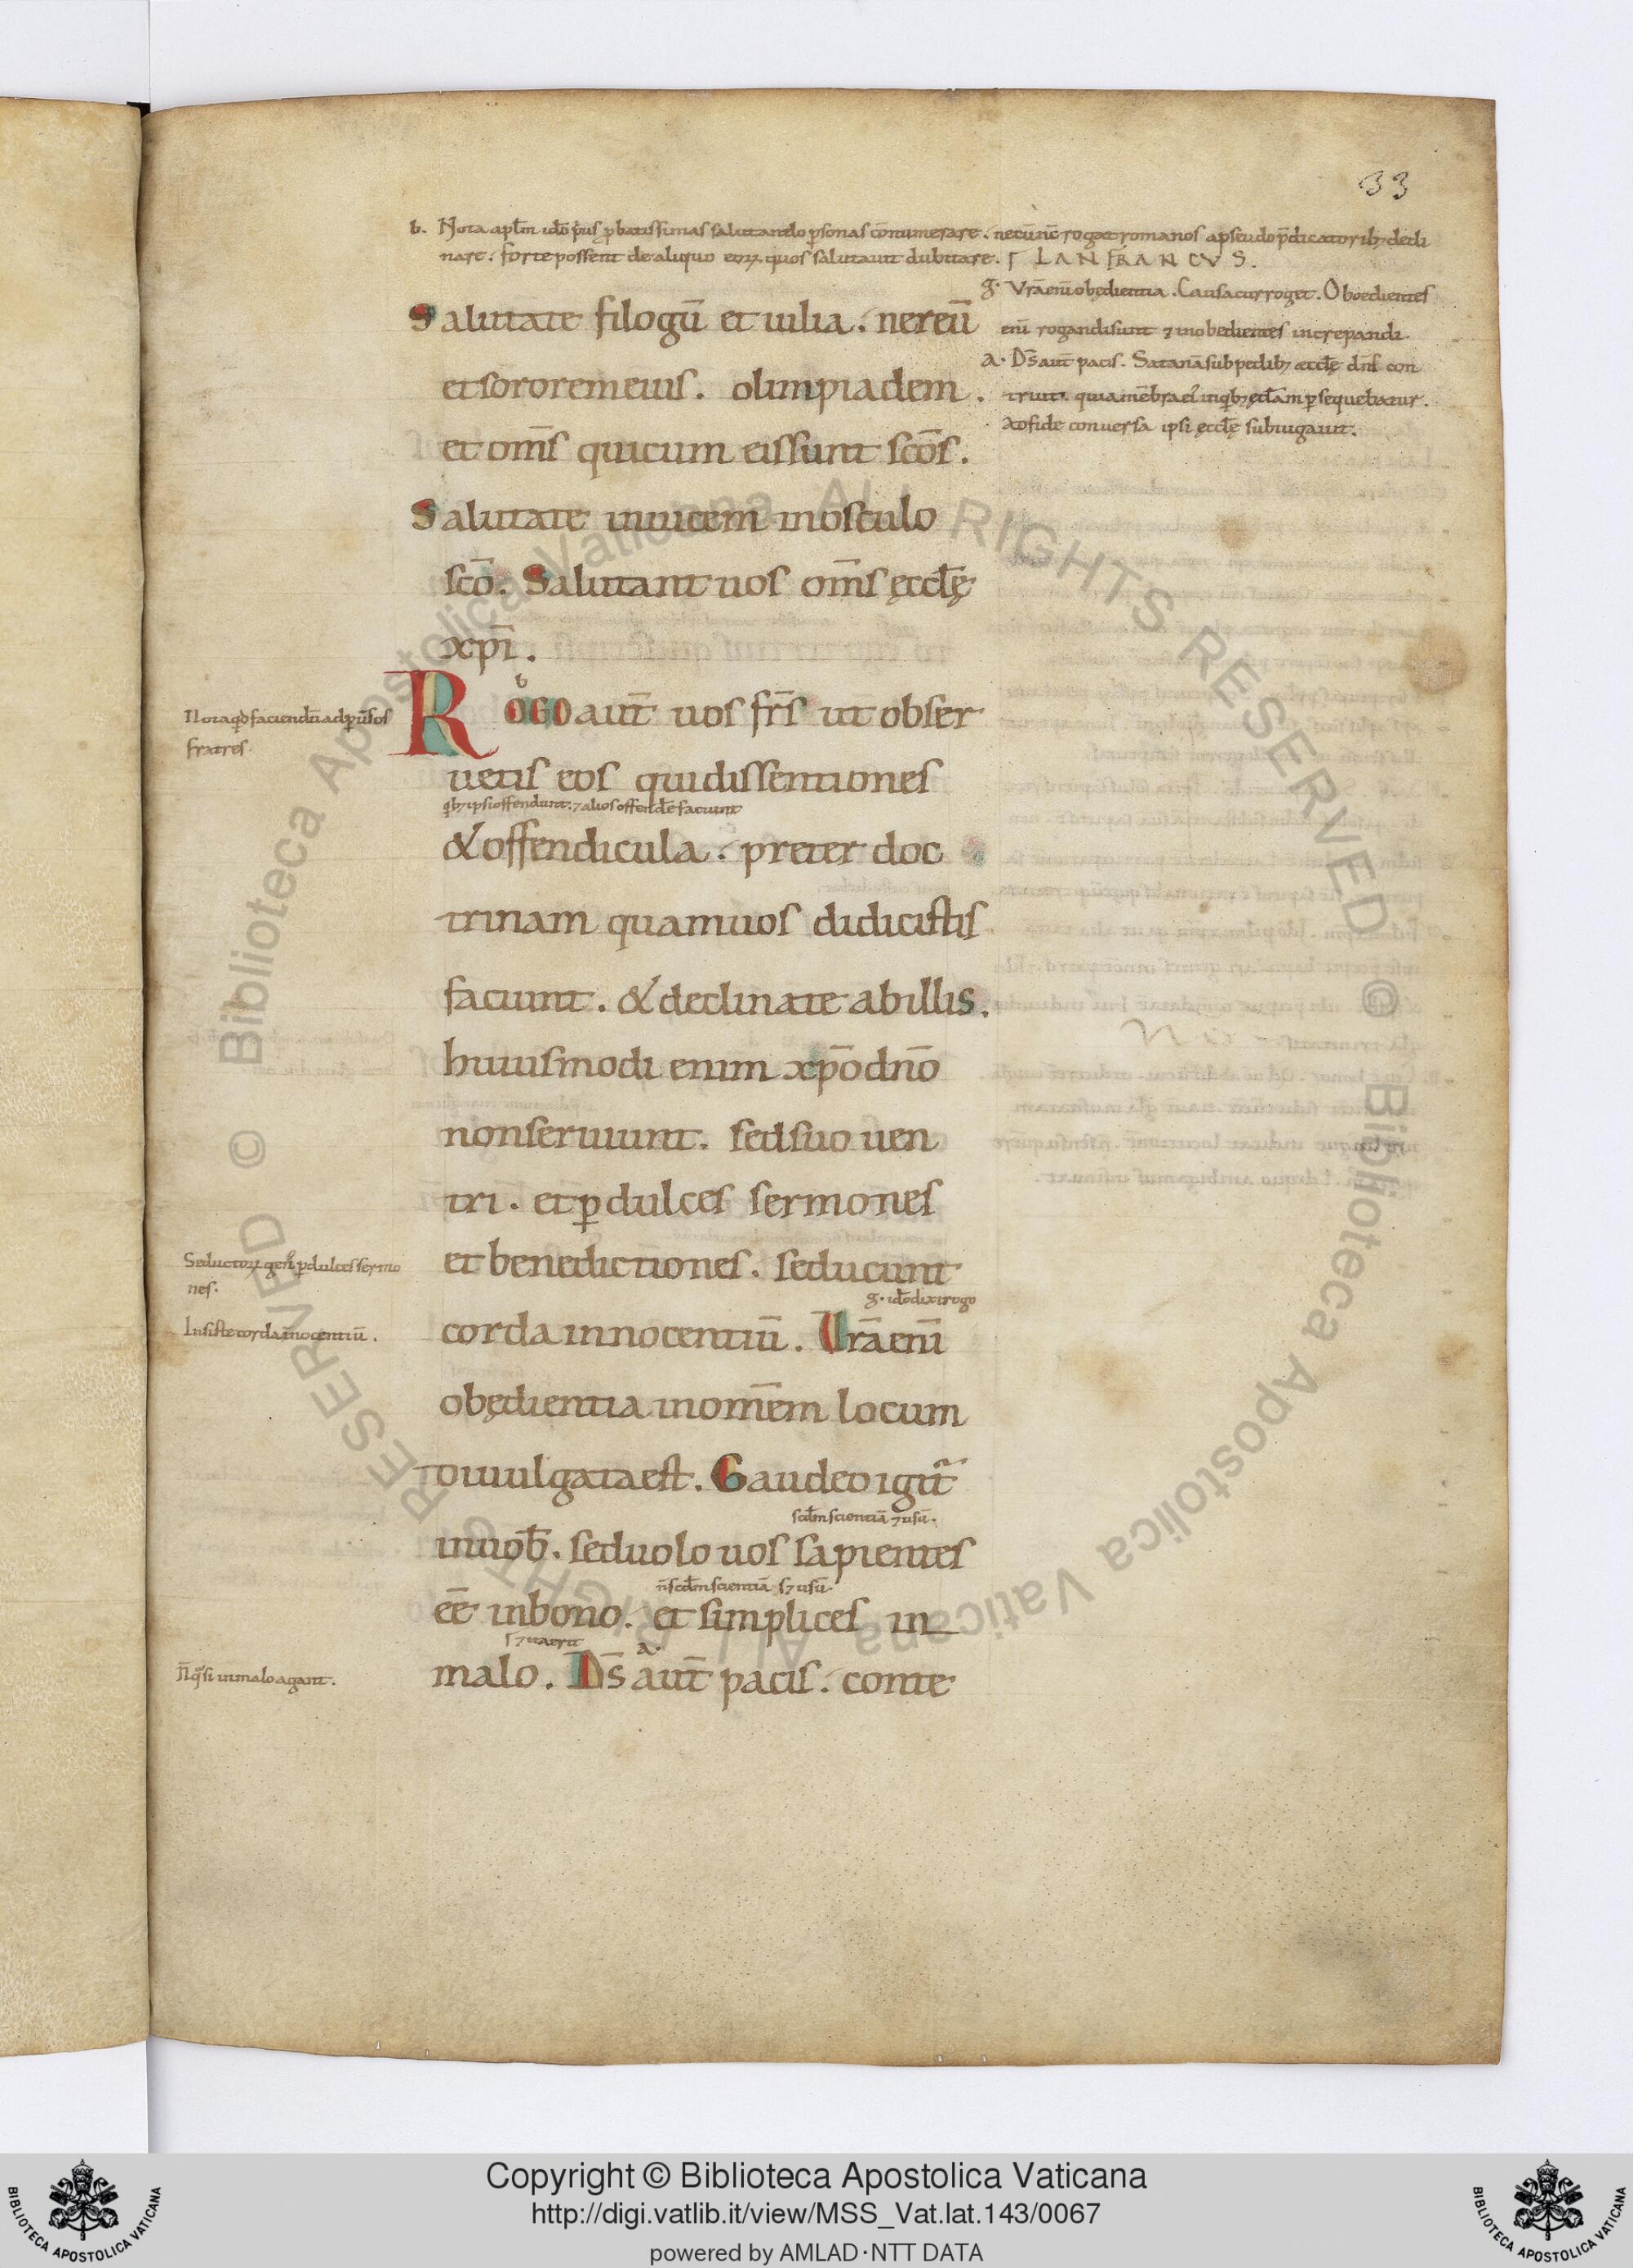 33
b. Nota apl̄m idō prius ꝓbatissimas salutando ꝑsonas cōnumerare. nec̄ūc̄ rogat romanos a pseudop̄dicatorib; decli
nare. forte possent de aliquo eoꝝ quos salutauit dubitare. LANFRANCVS.
g. Vrā enī obędientia. Causa cur roget. Oboedientes
enī rogandi sunt ⁊ inobedientes increpandi.
a. Ds̄ aut̄ pacis. Satanā sub pedib; æccłę dn̄s con
triuit. quia mēbra ei in qb; ęcłam ꝑsequebatur.
ad fidē conuersa ipsi ęccłę subiugauit.
Salutate filogū et iulia. nereū
et sororem eius. olimpiadem.
et om̄s qui cum eis sunt scōs.
Salutate inuicem in osculo
scō. Salutant uos om̄s ęccłę
xp̄i.
b
Rogo aut̄ uos fr̄s ut obser
Nota qd̄ faciendū ad p̄usos
fratres.
uetis eos qui dissentiones
qb; ipsi offendunt. ⁊ alios offendē faciunt
& offendicula. preter doc
trinam quam uos didicistis
faciunt. & declinate ab illis.
huiusmodi enim xp̄o dn̄o
non seruiunt. sed suo uen
tri. et ꝑ dulces sermones
et benedictiones. seducunt
Seductoꝝ gen' ꝑ dulces sermo
nes.
g. idō dixi rogo
corda innocentiū. Vrā enī
Insiste corda innocentiū.
obędientia in omēm locum
diuulgata est. Gaudeo igit̄
scd̄m scientiā ⁊ usū.
in uob̄. sed uolo uos sapientes
n̄ scd̄m scientiā s; usū.
eē in bono. et simplices in
a.
malo. Ds̄ aut̄ pacis. conte
n̄ q̄si in malo agant.
Copyright © Biblioteca Apostolica Vaticana
http://digi.vatlib.it/view/MSS_Vat.lat.143/0067
powered by AMLAD·NTT DATA
BIBLIOTECA APOSTOLICA VATICANA
BIBLIOTECA APOSTOLICA VATICANA
© Biblioteca Apostolica Vaticana ALL RIGHTS RESERVED © Biblioteca Apostolica Vaticana ALL RIGHTS RESERVED